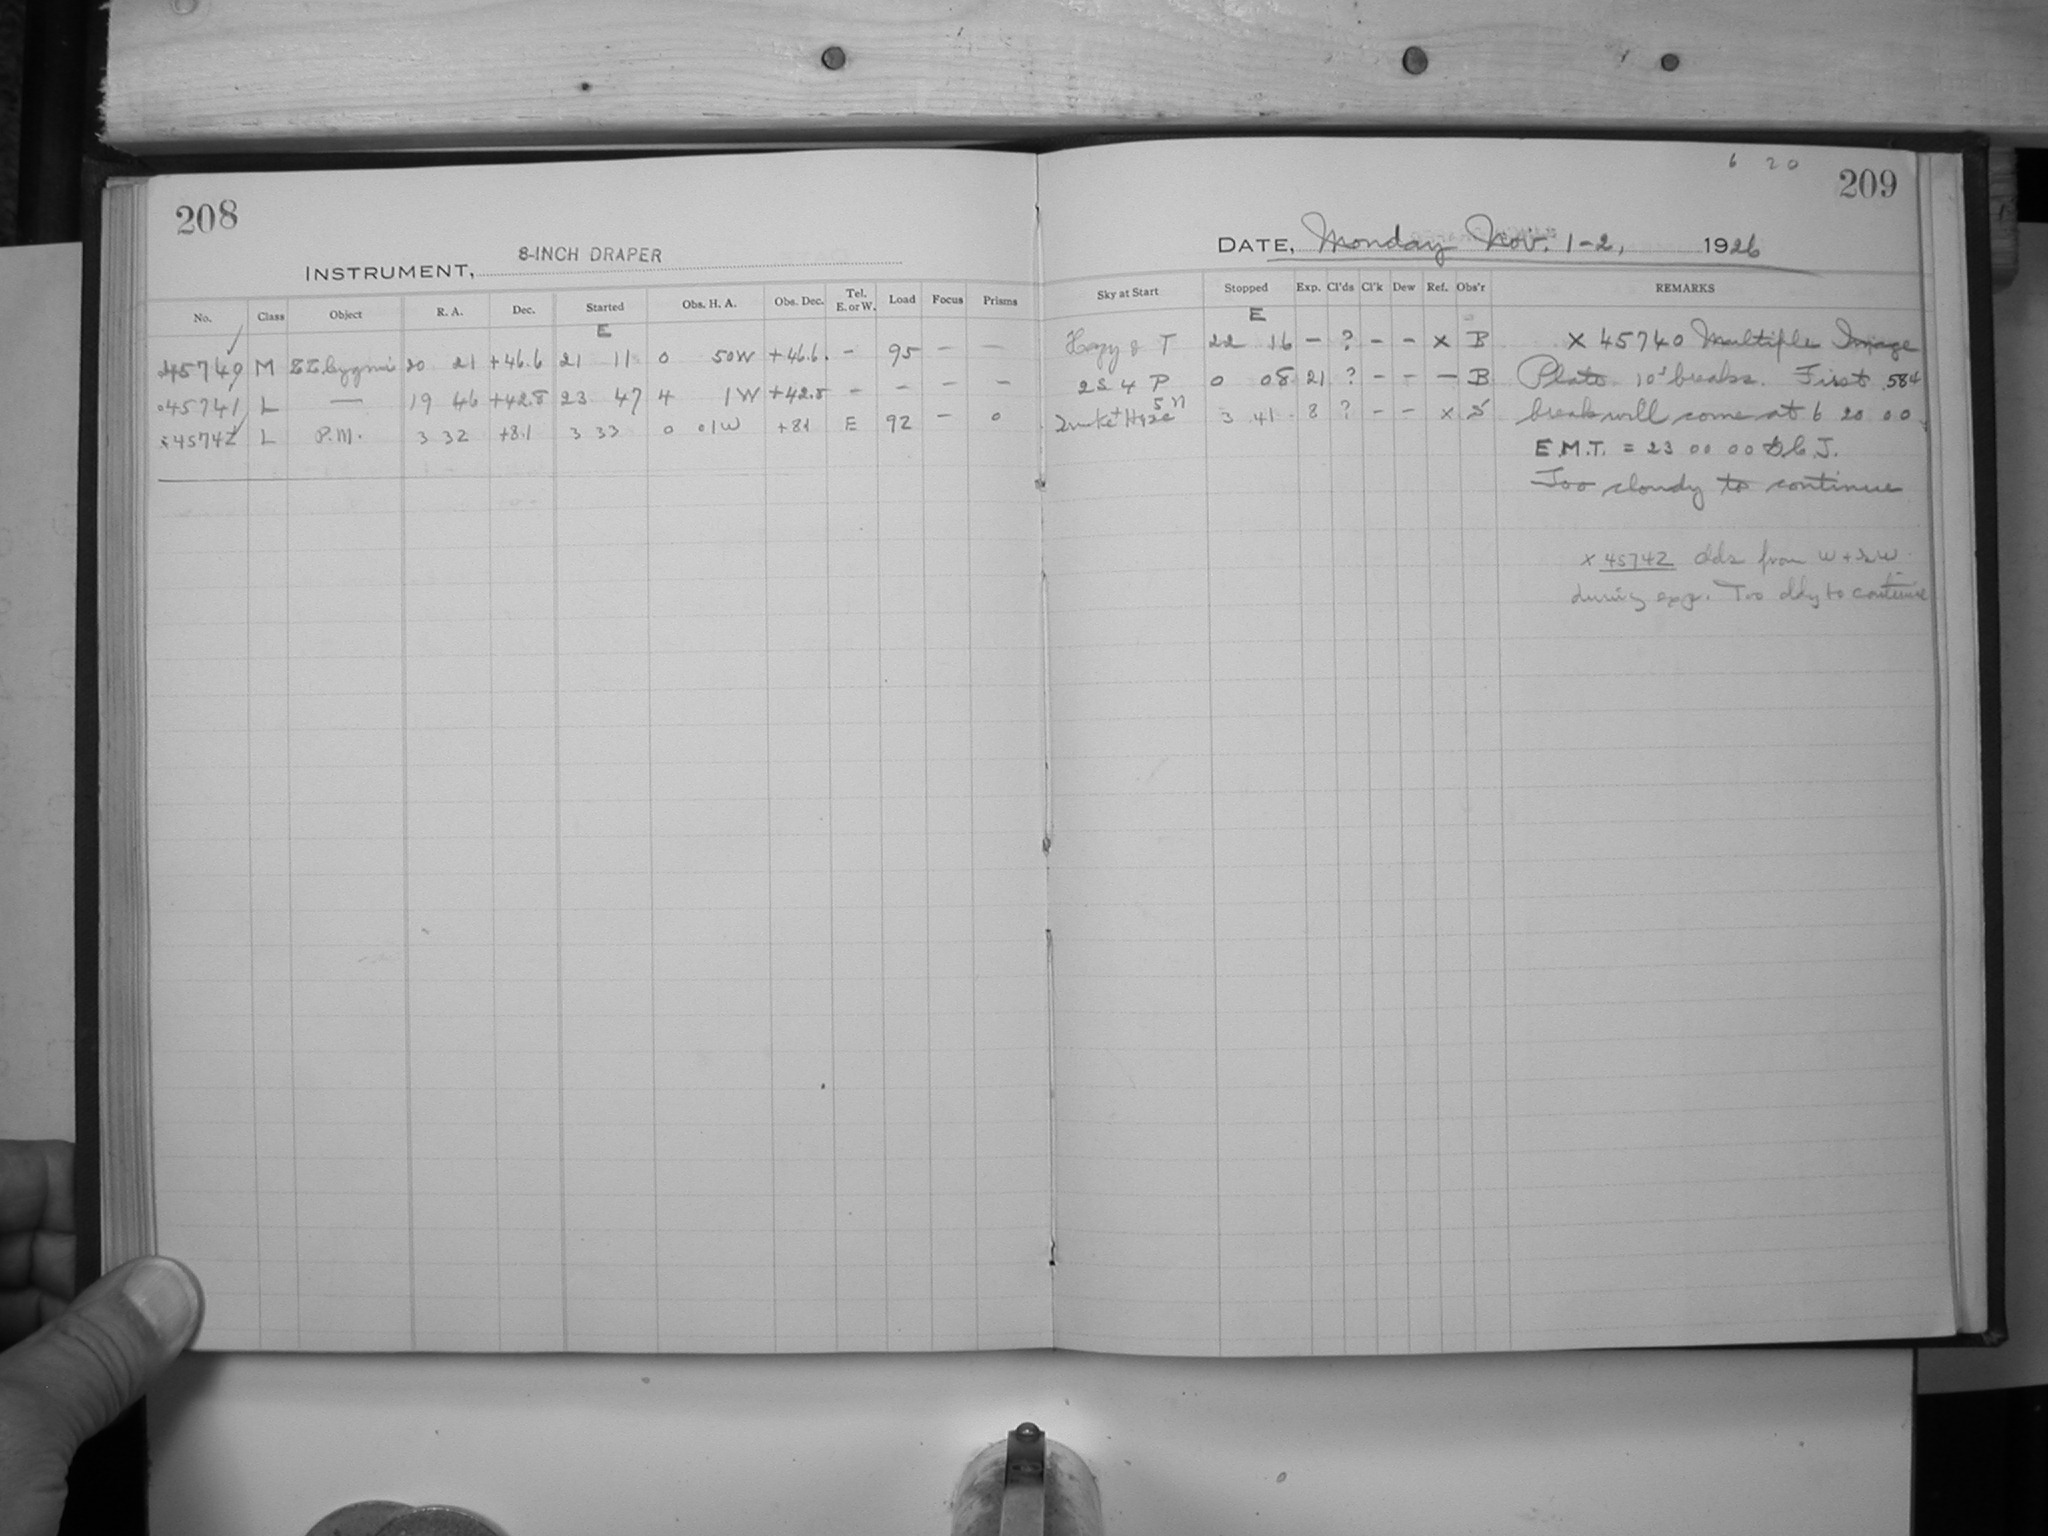 208
INSTRUMENT, 8-INCH DRAPER
No. Class Object R. A. Dec. Started Obs. H. A. Obs. Dec. Tel. E. or W. Load Focus Prisms
E
45740 M Cygni 20 21 +46.6 21 11 0 50W +46.6 - 95 - -
45741 L — 19 46 +42.8 23 47 4 1W +42.8 - - - -
x45742 L P.M. 3 32 +8.1 3 33 0 01W +8.1 E 92 - 0
6 20
209
DATE, Monday Nov. 1-2, 1926
Sky at Start Stopped Exp. Cl'ds Cl'k Dew Ref. Obs'r REMARKS
E
Hazy & T 22 16 - ? - - x B x 45740 Multiple Image
2S4 P 0 08 21 ? - - - B Plate 10s breaks. First 584
+ Haze 3 41 8 ? - - x S break will come at 6 20 00
E.M.T. = 23 00 00
Too cloudy to continue
x 45742 clds from W +
during exp. Too cldy to continue